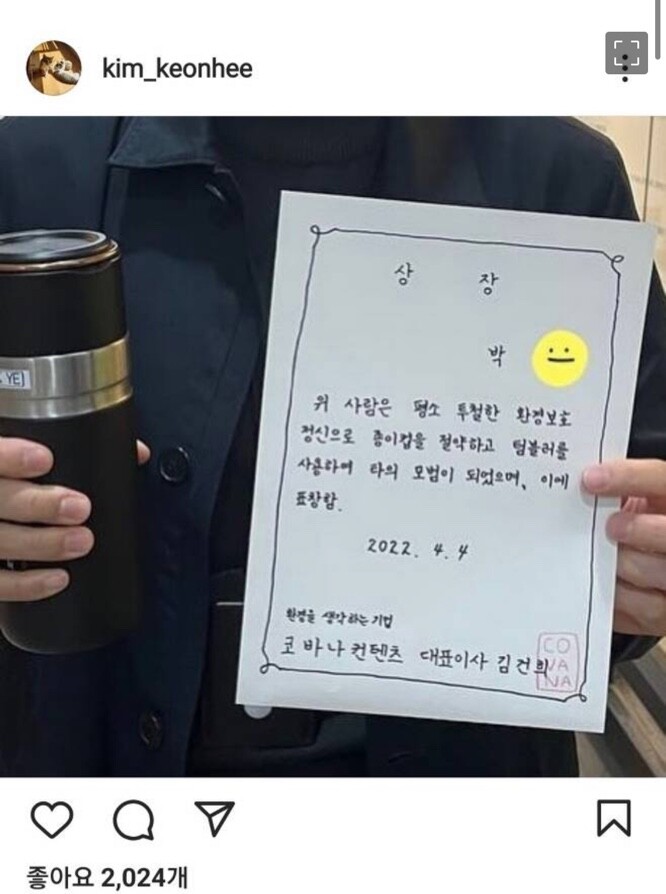 kim_keonhee
YE)
상 장
박
위 사람은 평소 투철한 환경보호
정신으로 종이컵을 절약하고 텀블러를
사용하며 타의 모범이 되었으며, 이에
표창함.
2022. 4. 4
환경을 생각하는 기업
코바나컨텐츠 대표이사 김건희
CO
VA
NA
좋아요 2,024개